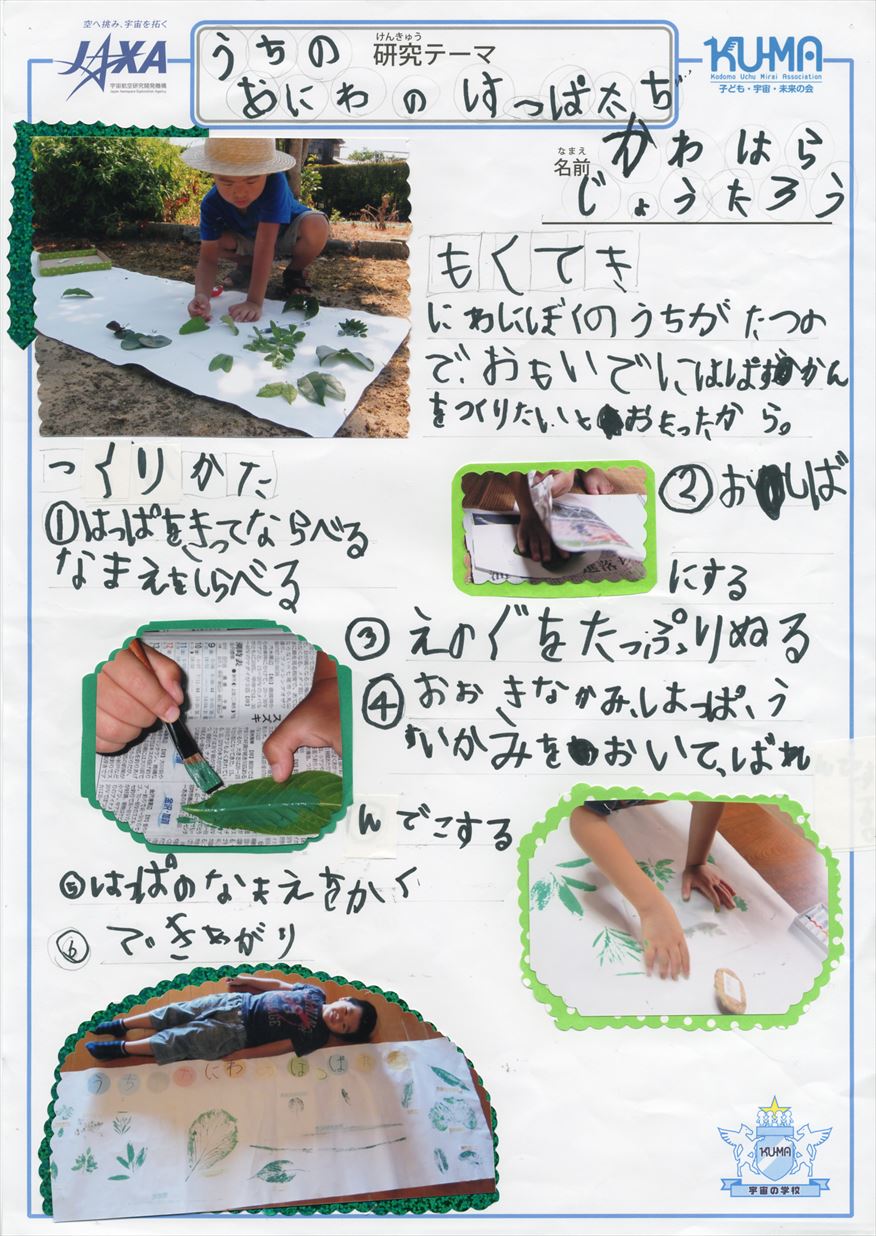 空へ挑み、宇宙を拓く
JAXA
宇宙航空研究開発機構
Japan Aerospace Exploration Agency
けんきゅう
研究テーマ
うちの
おにわのはっぱたち
KU-MA
Kodomo Uchu Mirai Association
子ども・宇宙・未来の会
なまえ
名前
かわはら
じょうたろう
もくてき
にわにぼくのうちがたつの
で、おもいでにはっぱずかん
をつくりたいとおもったから。
つくりかた
①はっぱをきってならべる
なまえをしらべる
②おしば
にする
③えのぐをたっぷりぬる
④おおきなかみ、はっぱ、う
すいかみをおいて、ばれ
んでこする
⑤はっぱのなまえをかく
⑥できあがり
うちのおにわのはっぱたち
KU-MA
宇宙の学校